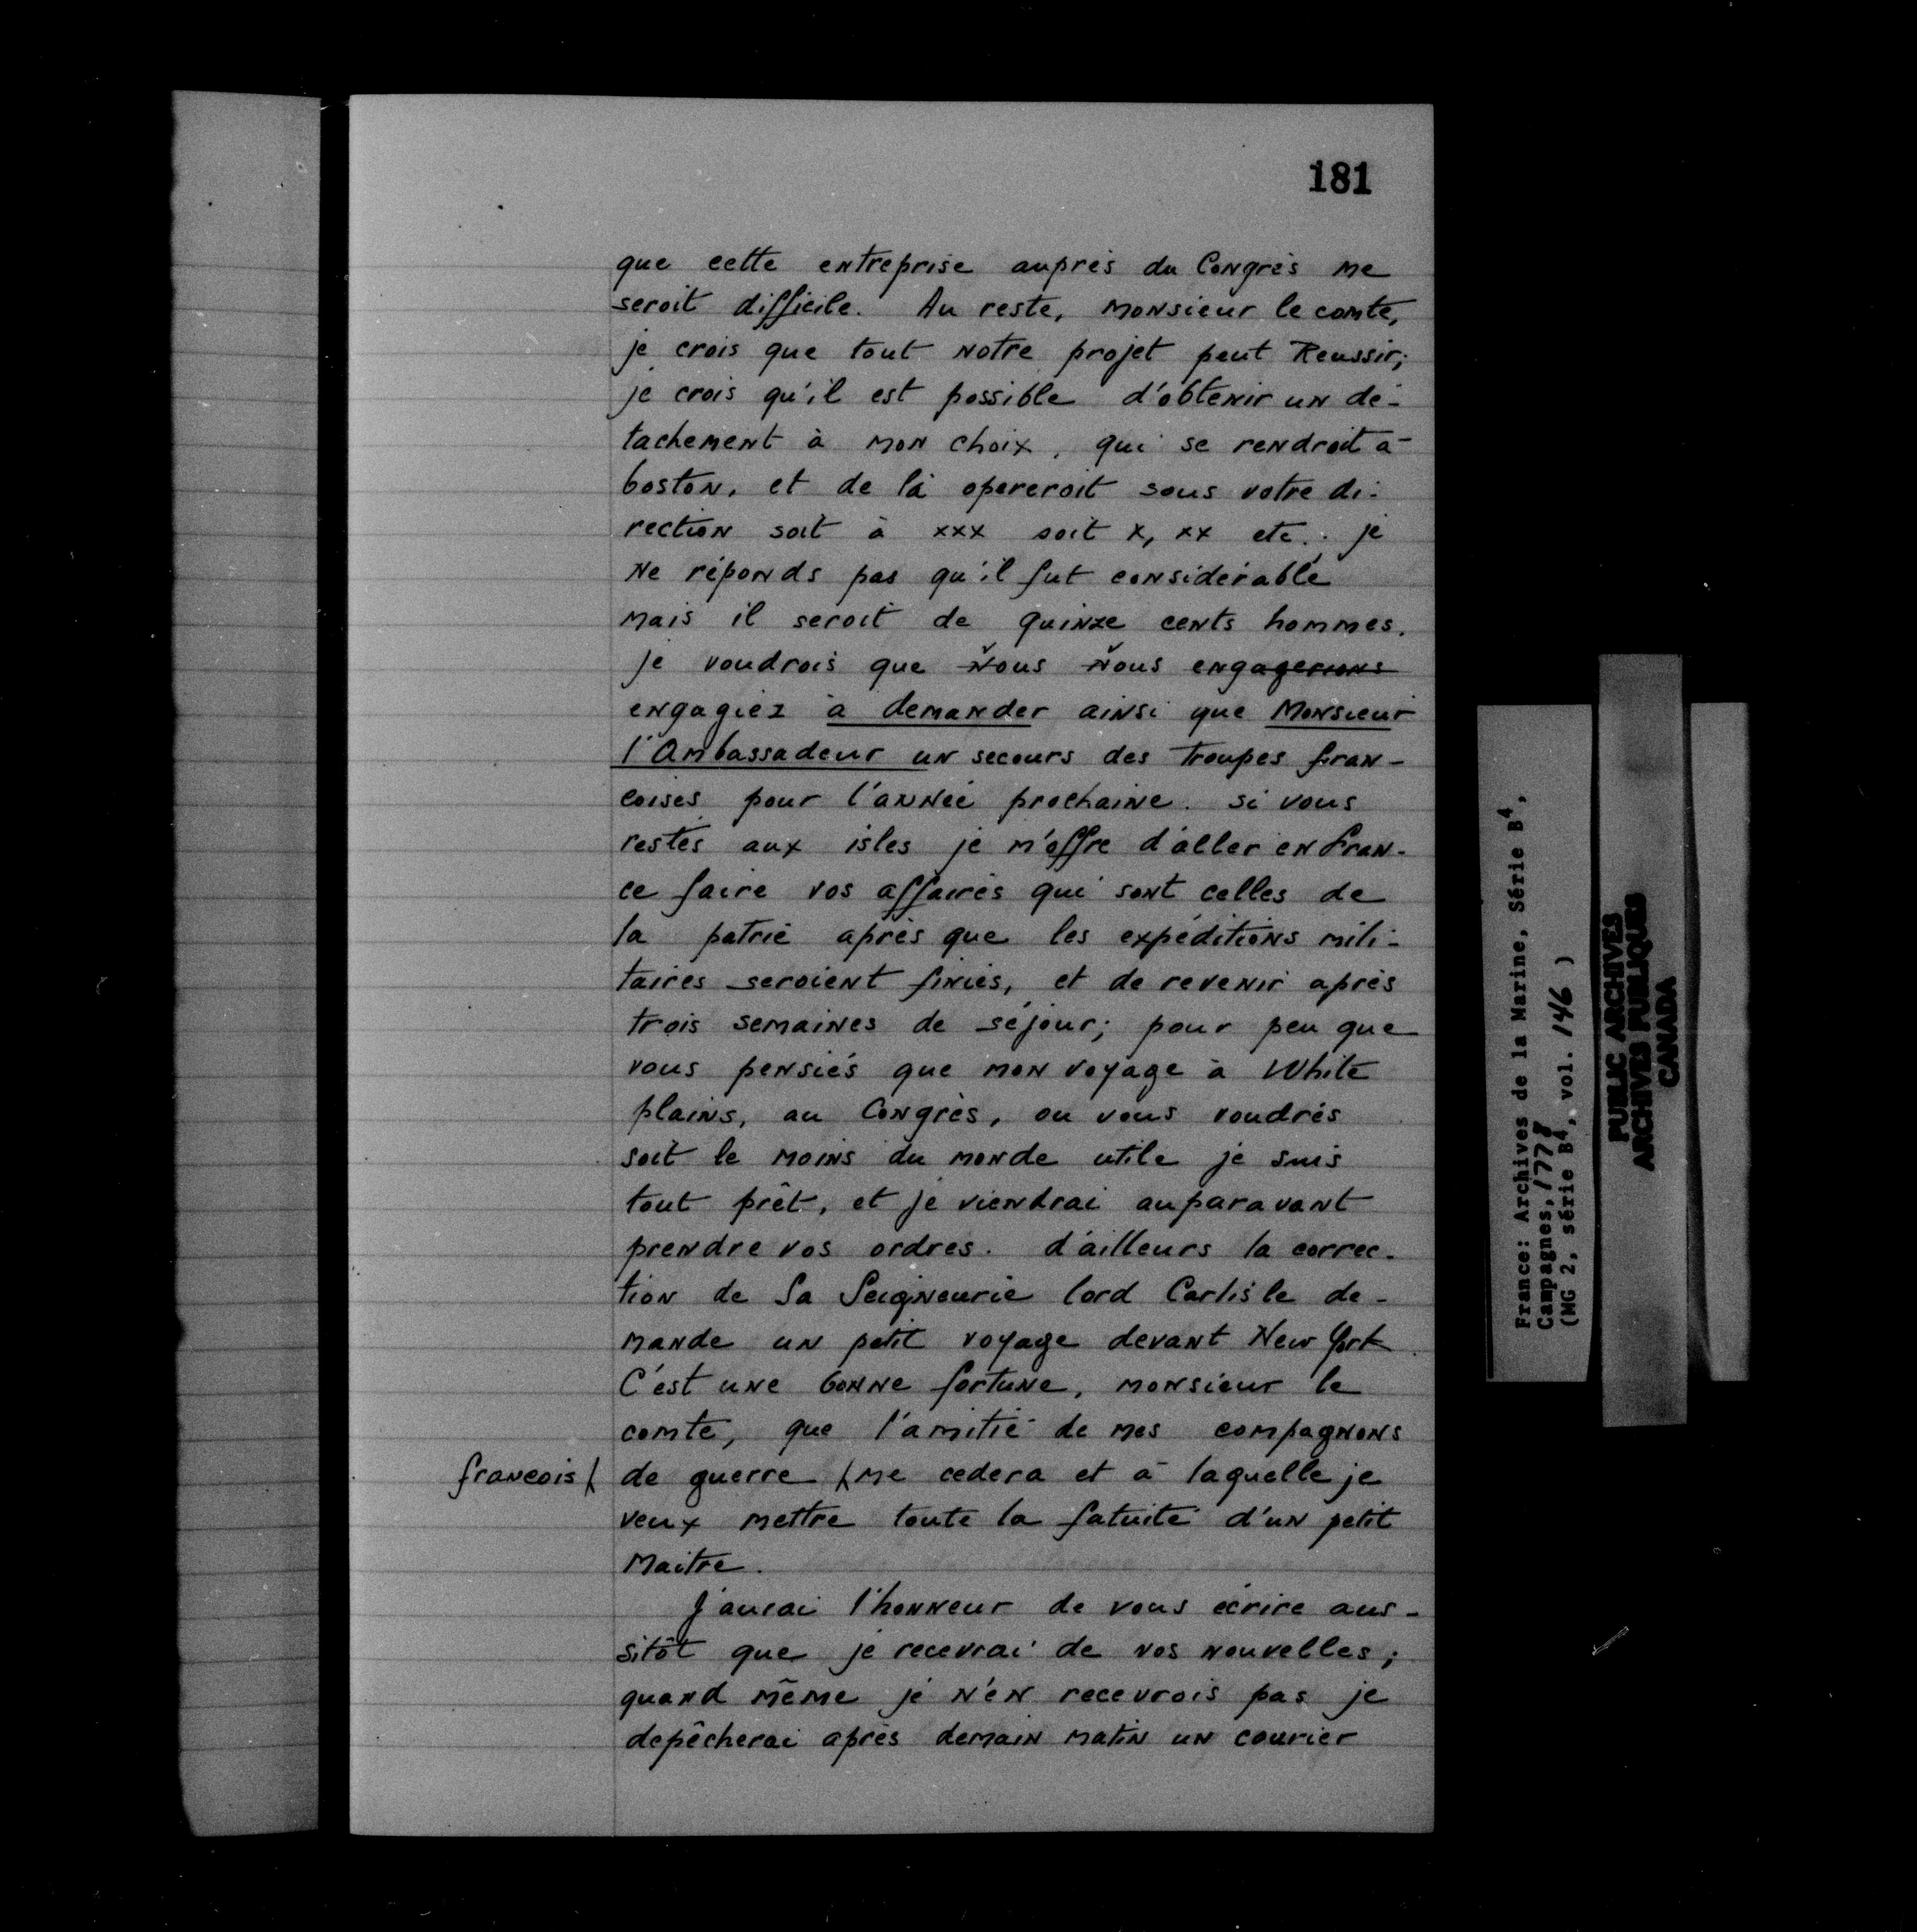 181
que cette entreprise auprès du Congrès me
seroit difficile. Au reste, Monsieur le comte,
je crois que tout notre projet peut Reussir;
je crois qu'il est possible d'obtenir un dé-
tachement à mon choix, qui se rendroit à
boston, et de là opereroit sous votre di-
rection soit à xxx soit x, xx etc.; je
ne réponds pas qu'il fut considérable
mais il seroit de quinze cents hommes.
je voudrois que vous vous engagerions
engagiez à demander ainsi que Monsieur
l'Ambassadeur un secours des troupes fran-
coises pour l'année prochaine. si vous
restés aux isles je m'offre d'aller en fran-
ce faire vos affaires qui sont celles de
la patrie après que les expéditions mili-
taires seroient finies, et de revenir après
trois semaines de séjour; pour peu que
vous pensiés que mon voyage à White
plains, au Congrès, ou vous voudrés
soit le moins du monde utile je suis
tout prêt, et je viendrai auparavant
prendre vos ordres. d'ailleurs la correc-
tion de Sa Seigneurie lord Carlisle de-
mande un petit voyage devant New York.
C'est une bonne fortune, monsieur le
comte, que l'amitié de mes compagnons
francois ( de guerre ( me cedera et à laquelle je
veux mettre toute la fatuité d'un petit
Maitre.
J'aurai l'honneur de vous écrire aus-
sitôt que je recevrai de vos nouvelles;
quand même je n'en recevrois pas je
depêcherai après demain matin un courier
France: Archives de la Marine, Série B4,
Campagnes, 1778
(MG 2, série B4, vol. 146 )
PUBLIC ARCHIVES
ARCHIVES PUBLIQUES
CANADA